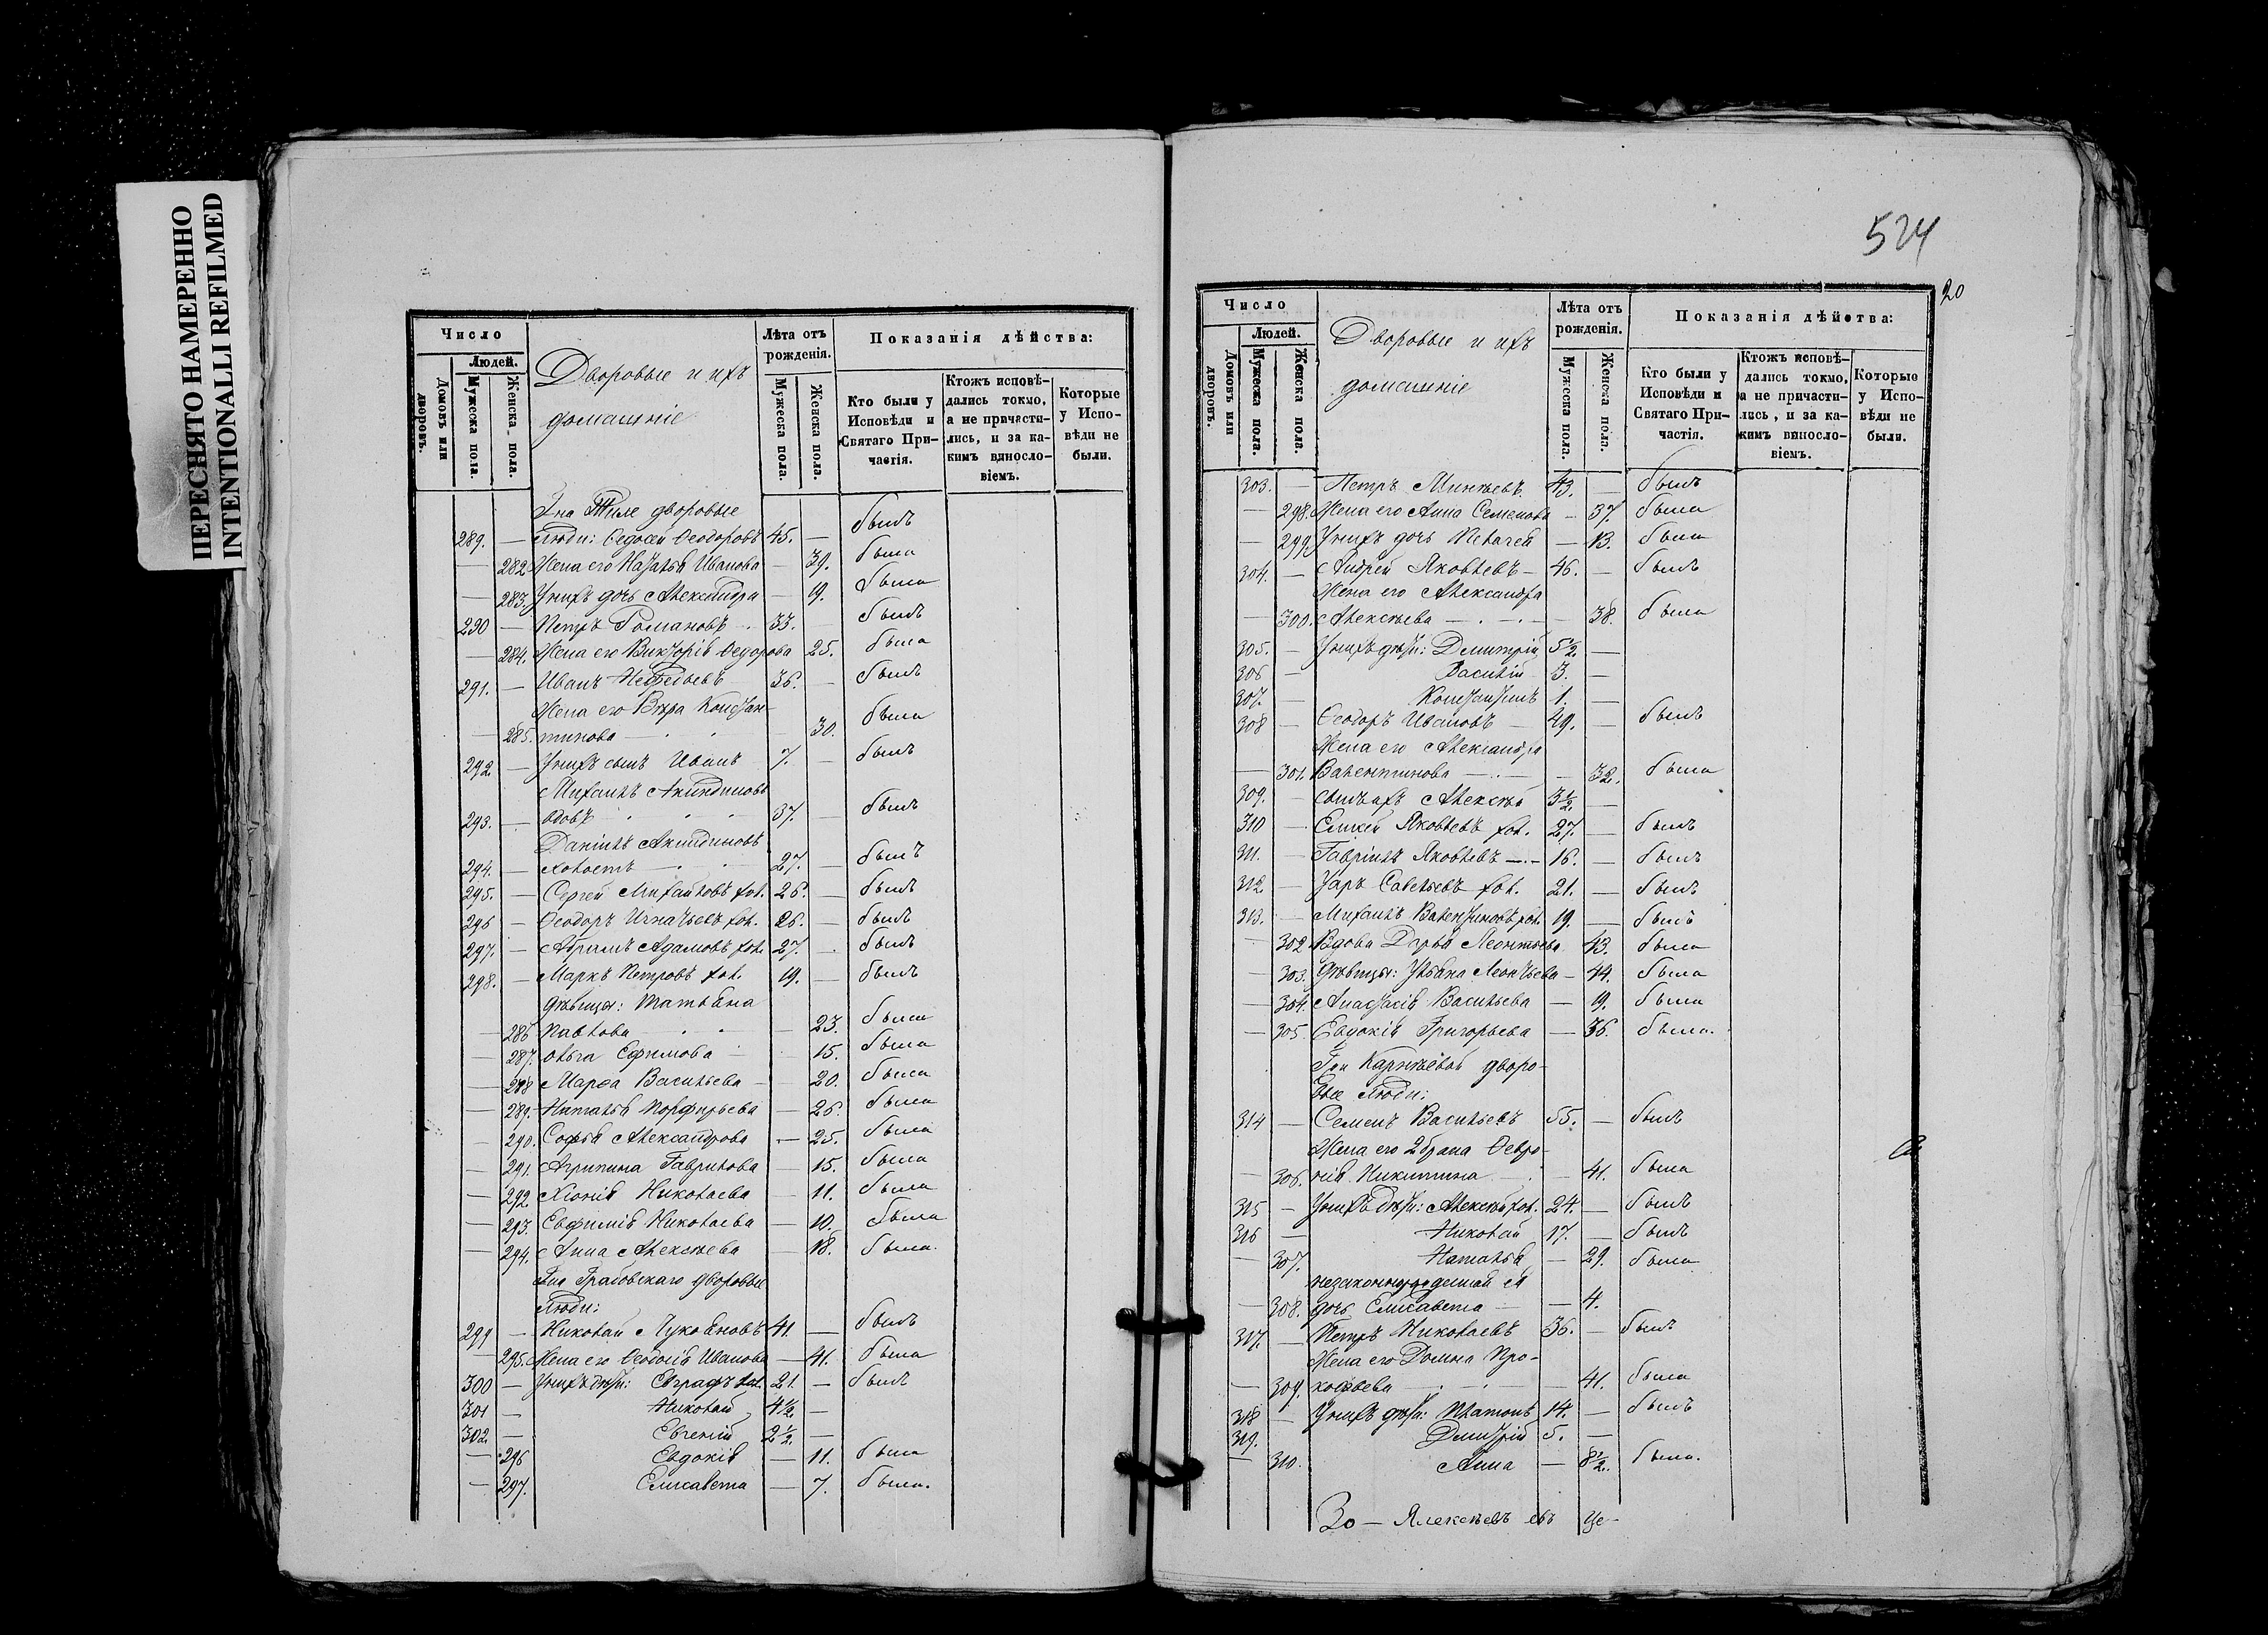 ПЕРЕСНЯТО НАМЕРЕННО
INTENTIONALLI REFILMED
Число
Людей.
Домовъ или дворовъ.
Мужеска пола.
Женска пола.
Дворовые и ихъ
домашніе
Лѣта отъ рожденія.
Мужеска пола.
Женска пола.
Показанія дѣйства:
Кто были у Исповѣди и Святаго Причастія.
Ктожъ исповѣдались токмо, а не причастились, и за какимъ винословіемъ.
Которые у Исповѣди не были.
Гна Тиле дворовые
289. — люди: Ѳедосей Ѳеодоровъ 45. — былъ
— 282 Жена его Наталья Иванова — 39. была
— 283. У нихъ дочь Александра — 19. была
290 — Петръ Романовъ 33. былъ
— 284. Жена его Викторія Ѳедорова 25. была
291. — Иванъ Нефедьевъ 36. — былъ
Жена его Вѣра Констан-
— 285. тинова — 30. была
292 — У нихъ сынъ Иванъ 7. — былъ
Михаилъ Акиндиновъ
293. — вдовъ 37. — былъ
Даніилъ Акиндиновъ
294. — холостъ — 27. — былъ
295. — Сергей Михайловъ хол. 26. — былъ
296 — Ѳеодоръ Игнатьевъ хол. 26. — былъ
297. — Абрамъ Адамовъ хол. 27. — былъ
298. — Маркъ Петровъ хол. 19. — былъ
дѣвицы: Татьяна
— 286 Павлова — 23. была
— 287. Ольга Ефимова — 15. была
— 288 Марѳа Васильева — 20. была
— 289. Наталья Порфирьева — 26. была
— 290. Софья Александрова — 25. была
— 291. Агрипина Гаврилова — 15. была
— 292 Хіонія Николаева — 11. была
— 293. Евфимія Николаева — 10. была
— 294. Анна Алексѣева — 18. была.
Гна Грабовскаго дворовые
люди:
299 — Николай Лукьяновъ 41. — былъ
— 295. Жена его Ѳеодосія Иванова — 41. была
300 — У нихъ дѣти: Евграфъ хол. 21. — былъ
301 — Николай 4½. —
302 — Евгеній 2½. —
— 296 Евдокія — 11. была
— 297. Елисавета — 7. была.
524
20
Число
Людей.
Домовъ или дворовъ.
Мужеска пола.
Женска пола.
Дворовые и ихъ
домашніе
Лѣта отъ рожденія.
Мужеска пола.
Женска пола.
Показанія дѣйства:
Кто были у Исповѣди и Святаго Причастія.
Ктожъ исповѣдались токмо, а не причастились, и за какимъ винословіемъ.
Которые у Исповѣди не были.
303. — Петръ Минѣевъ 43. — былъ
— 298. Жена его Анна Семенова — 37. была
— 299. У нихъ дочь Пелагея — 13. была
304. — Андрей Яковлевъ — 46. — былъ
Жена его Александра
— 300. Алексѣева — 38. была
305. — У нихъ дѣти: Дмитрій 5½. —
306 — Василій 3. —
307. — Константинъ 1. —
308 — Ѳеодоръ Ивановъ — 49. — былъ
Жена его Александра
— 301. Валентинова — 32. была
309. — сынъ ихъ Алексѣй 3½. —
310 — Елисей Яковлевъ хол. 27. — былъ
311. — Гавріилъ Яковлевъ — 16. — былъ
312 — Уаръ Савельевъ хол. 21. — былъ
313. — Михаилъ Валентиновъ хол. 19. — былъ
— 302 Вдова Дарья Леонтьева. 43. была
— 303. дѣвицы: Ульяна Леонтьева — 44. была
— 304. Анастасія Васильева — 19. была
— 305 Евдокія Григорьева — 36. была.
Гжи дворо-
вые люди:
314 — Семенъ Васильевъ 55. — былъ
Жена его 2 брака Ѳевро-
— 306. нія Никитина — 41. была
315 — У нихъ дѣти: Алексѣй хол. 24. — былъ
316 — Николай 17. — былъ
— 307. Наталья — 29. была
незаконнорожденная ея
— 308. дочь Елисавета — 4.
317. — Петръ Николаевъ 36. — былъ
Жена его Домна Про-
— 309. кофьева — 41. была
318 — У нихъ дѣти: Платонъ 14. — былъ
319. — Дмитрій 5. —
— 310. Анна — 8½. была.
Алексѣевъ